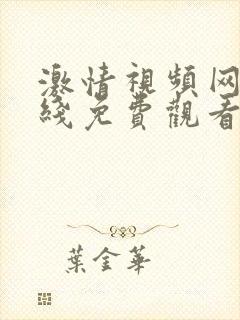 激情視頻网
綫免費觀看
葉金華